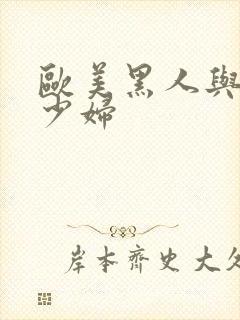 歐美黑人與
少婦
岸本齊史大久